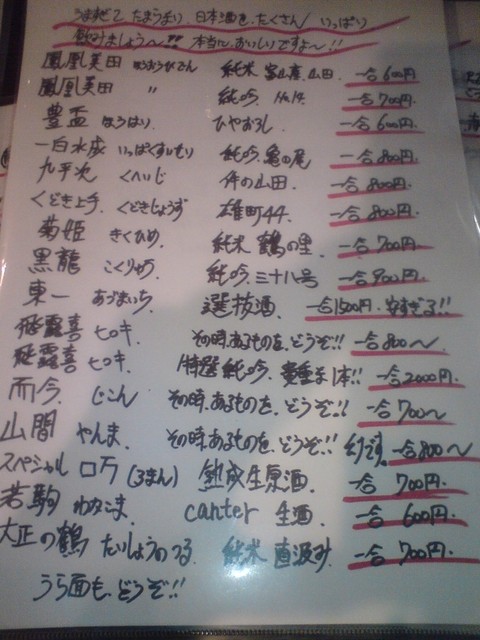 たまうまい、日本酒を、たくさん いっぱい
飲みましょう〜!! 本当に、おいしいですよ〜!!
鳳凰美田 ほうおうびでん 純米 富山産 山田 一合600円
鳳凰美田 〃 純吟 No.14. 一合700円
豊盃 ほうはい ひやおろし 一合600円
一白水成 いっぱくすいせい 純吟 亀の尾 一合800円
九平次 くへいじ 件の山田 一合800円
くどき上手 くどきじょうず 雄町44 一合800円
菊姫 きくひめ 純米 鶴の里 一合700円
黒龍 こくりゅう 純吟 三十八号 一合900円
東一 あづまいち 選抜酒 一合1500円. 安すぎる!!
飛露喜 ヒロキ その時、あるものを、どうぞ!! 一合800〜
飛露喜 ヒロキ. 特選純吟. 貴重な1本!! 一合2000円.
而今. じこん その時、あるものを、どうぞ!! 一合700〜
山間 やんま. その時、あるものを、どうぞ!! 一合800〜
スペシャル ロ万 (ろまん) 熟成生原酒. 一合 700円.
若駒 わかこま. canter 生酒. 一合 600円.
大正の鶴 たいしょうのつる 純米 直汲み. 一合 700円.
うら面も、どうぞ!!